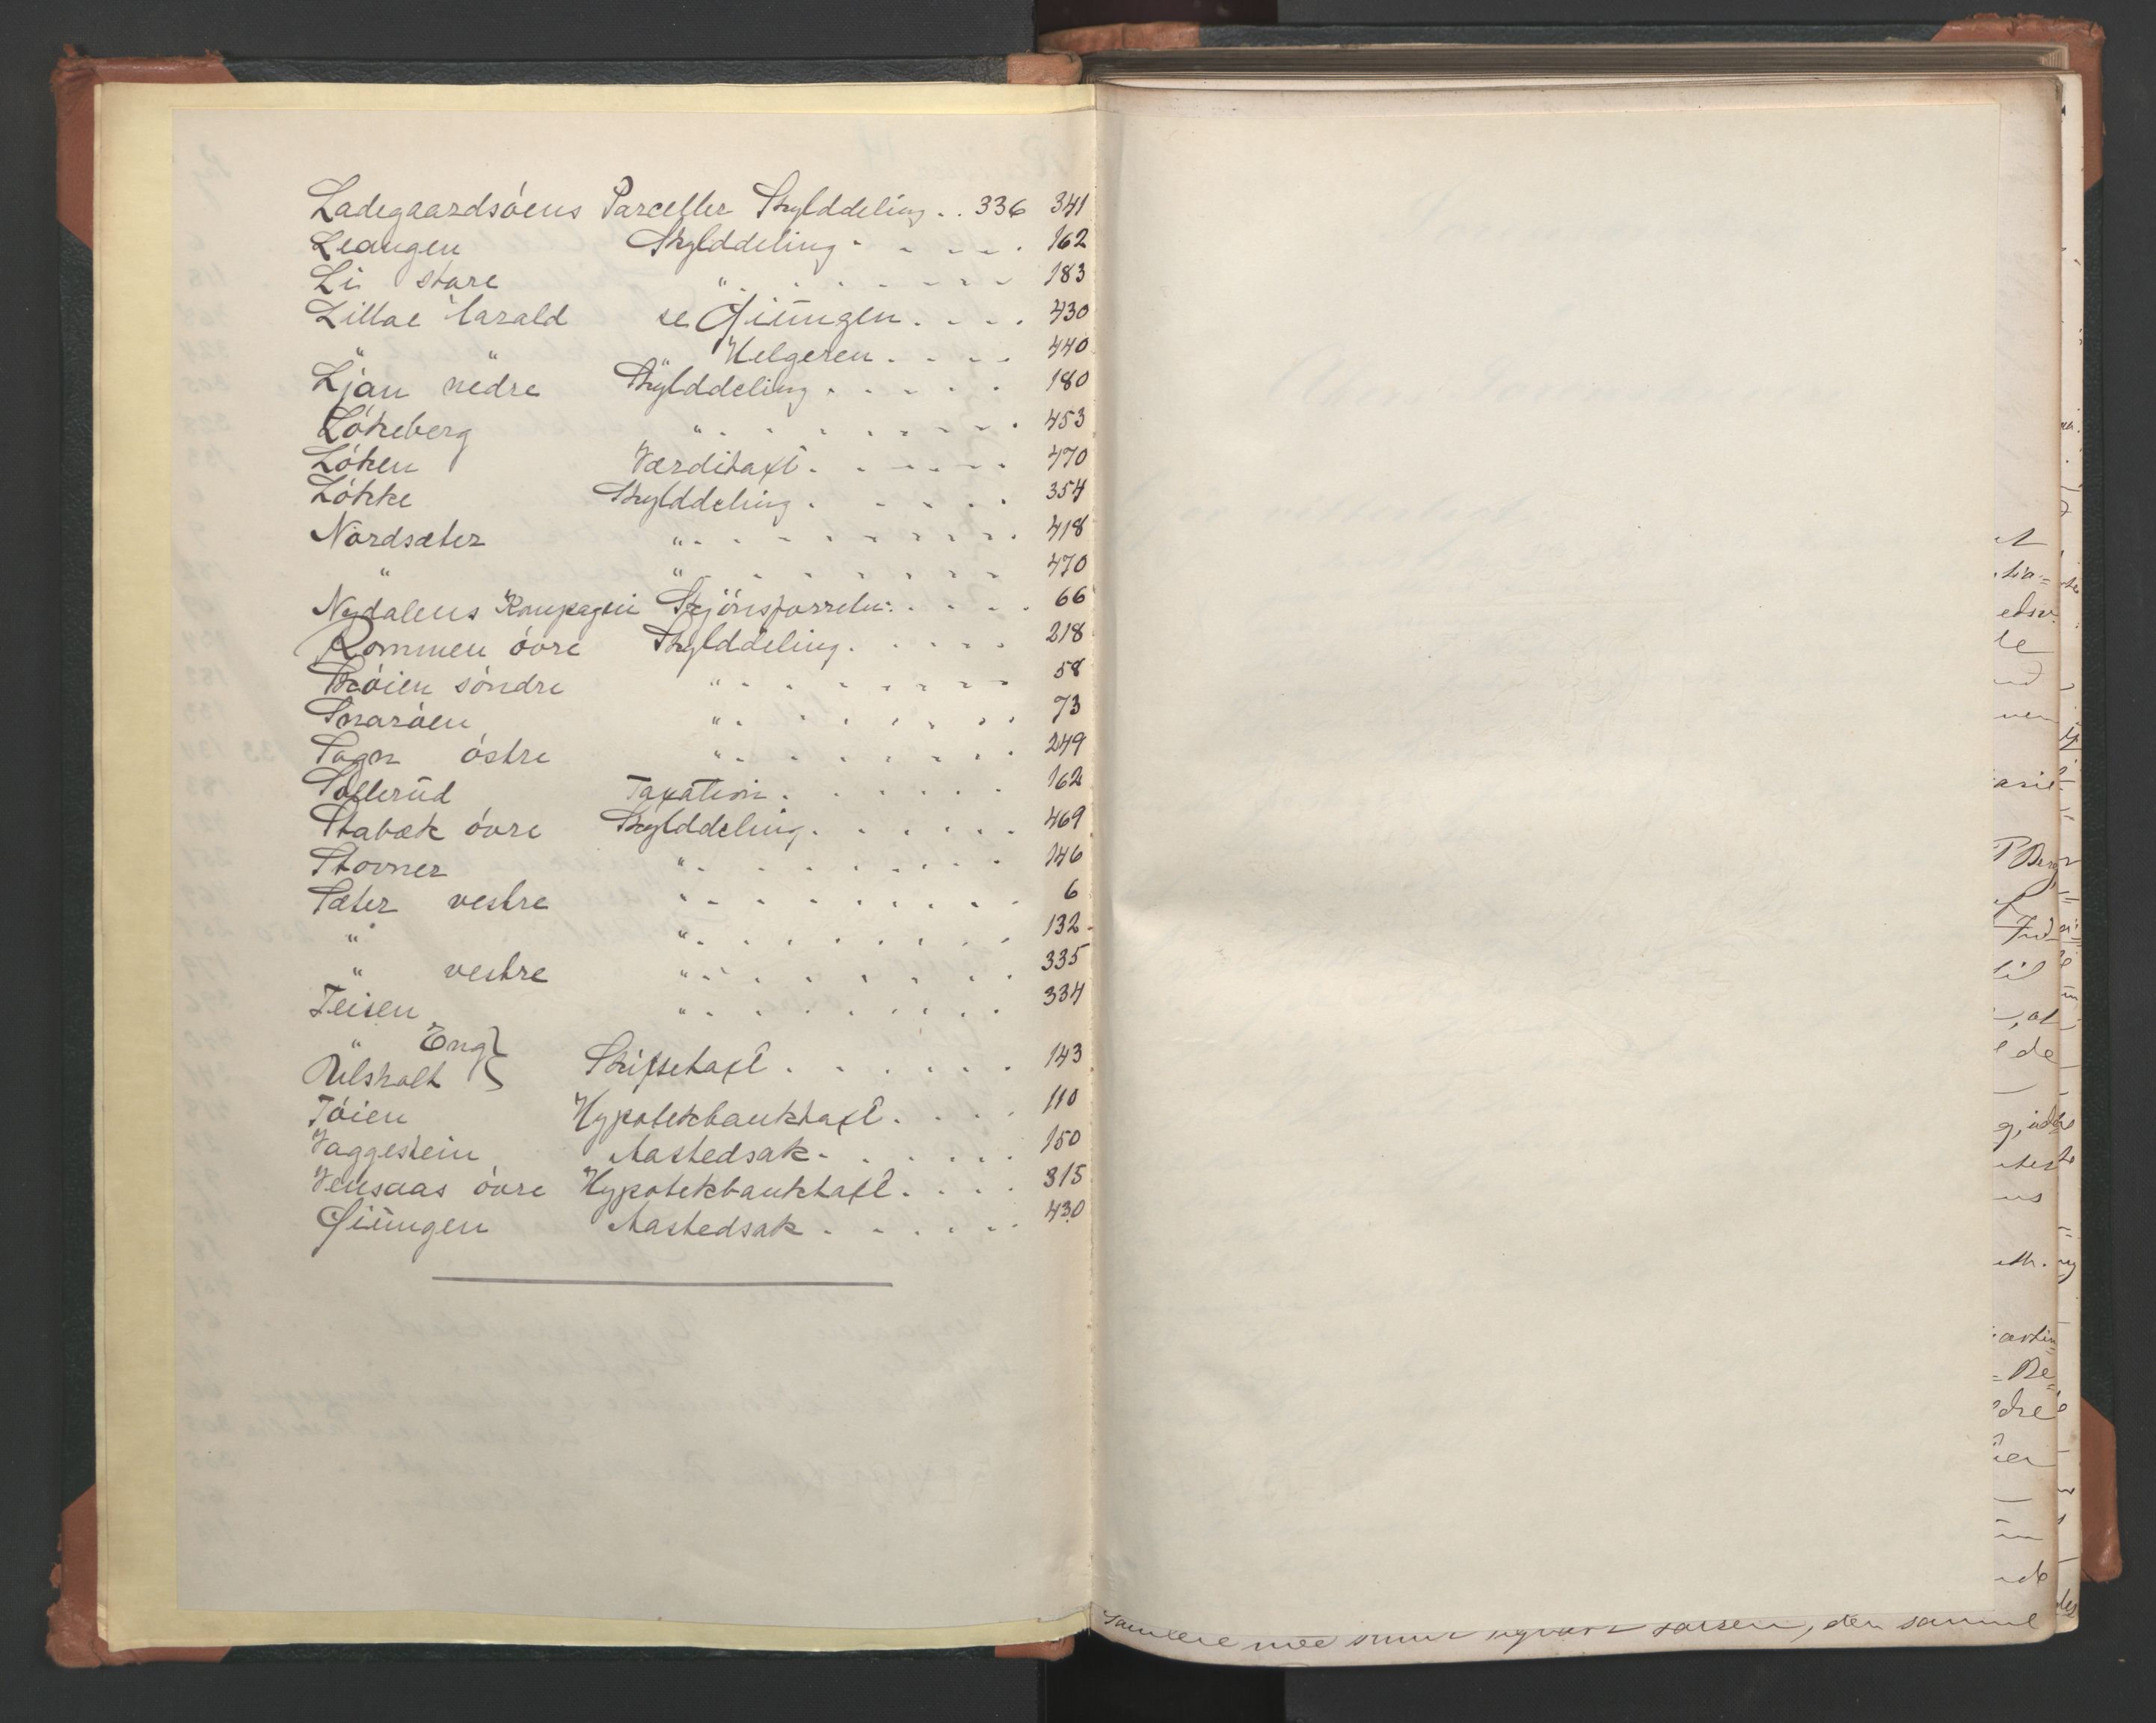 Ladegaardsöens Parceller Skylddeling . . 336 341
Leangen Skylddeling . . . . . 162
Li store " . . . . . . . . 183
Lillae Harald se Gjüngen . . . . 430
" " " Helgeren . . . . 440
Ljan nedre Skylddeling . . . . . . 180
Lökeberg " . . . . . . . . . 453
Löken Værditaxt . . . . . . 470
Lökke Skylddeling . . . . . . 354
Nordsæter " . . . . . . . . . 418
" " . . . . . . . . 470
Nydalens Kompagni Skjönsforretn: . . . . . 66
Rommen övre Skylddeling . . . . . 218
Skøien söndre " . . . . . . . . 58
Snaröen " . . . . . . . . 73
Sogn östre " . . . . . . . . 249
Sollerüd Taxation . . . . . . . 162
Stabæk övre Skylddeling . . . . . . 469
Stovner " . . . . . . . . 146
Sæter vestre " . . . . . . . . . 6
" " . . . . . . . . 132
" vestre " . . . . . . . . 335
Teisen " . . . . . . . . 334
" Eng }
Ulsholt } Skiftetaxt . . . . . . 143
Töien Hypotekbanktaxt . . . . 110
Vaggestein Aastedsak . . . . . . 150
Vensaas övre Hypotekbanktaxt . . . . 315
Gjüngen Aastedsak . . . . . . 430